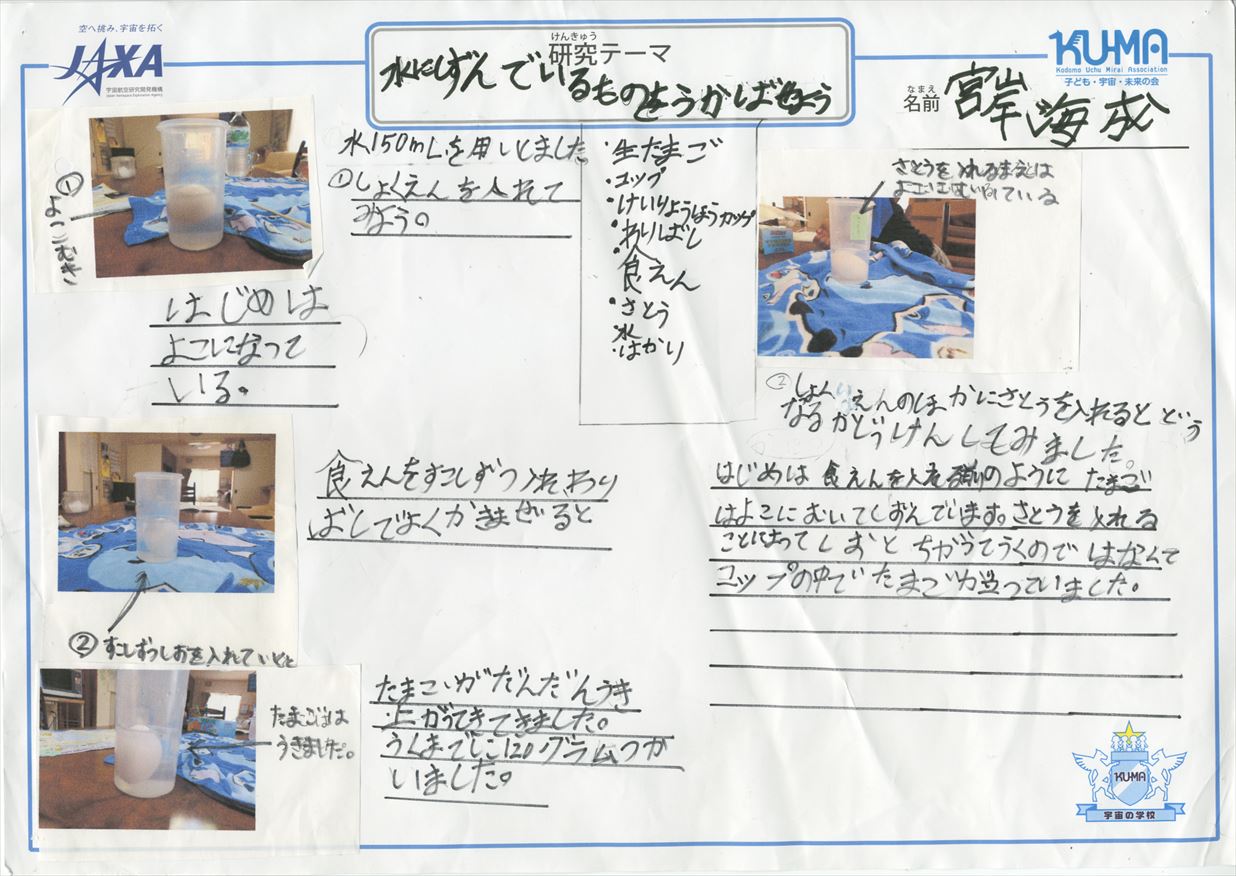 空へ挑み、宇宙を拓く
JAXA
宇宙航空研究開発機構
Japan Aerospace Exploration Agency
けんきゅう
研究テーマ
水にしずんでいるものをうかばせよう
KU-MA
Kodomo Uchu Mirai Association
子ども・宇宙・未来の会
なまえ
名前
宮岸 海成
① よこにむき
水150mLを用いました
①しょくえんを入れて
みよう。
はじめは
よこになって
いる。
・生たまご
・コップ
・けいりょうほうカップ
・わりばし
・食えん
・さとう
水
・はかり
さとうを入れるまえは
よこに
ている
食えんをすこしずつ入れわり
ばしでよくかきまぜると
② すこしずつしおを入れていくと
たまごは
うきました。
たまごがだんだんうき
上がってきてきました。
うくまでに120グラムつか
いました。
②しょくえんのほかにさとうを入れるとどう
なるかじっけんしてみました。
はじめは食えんを入れる前のようにたまご
はよこにむいてしずんでいます。さとうを入れる
ことによってしおとちがうてうくのではなくて
コップの中でたまごが立っていました。
KUMA
宇宙の学校